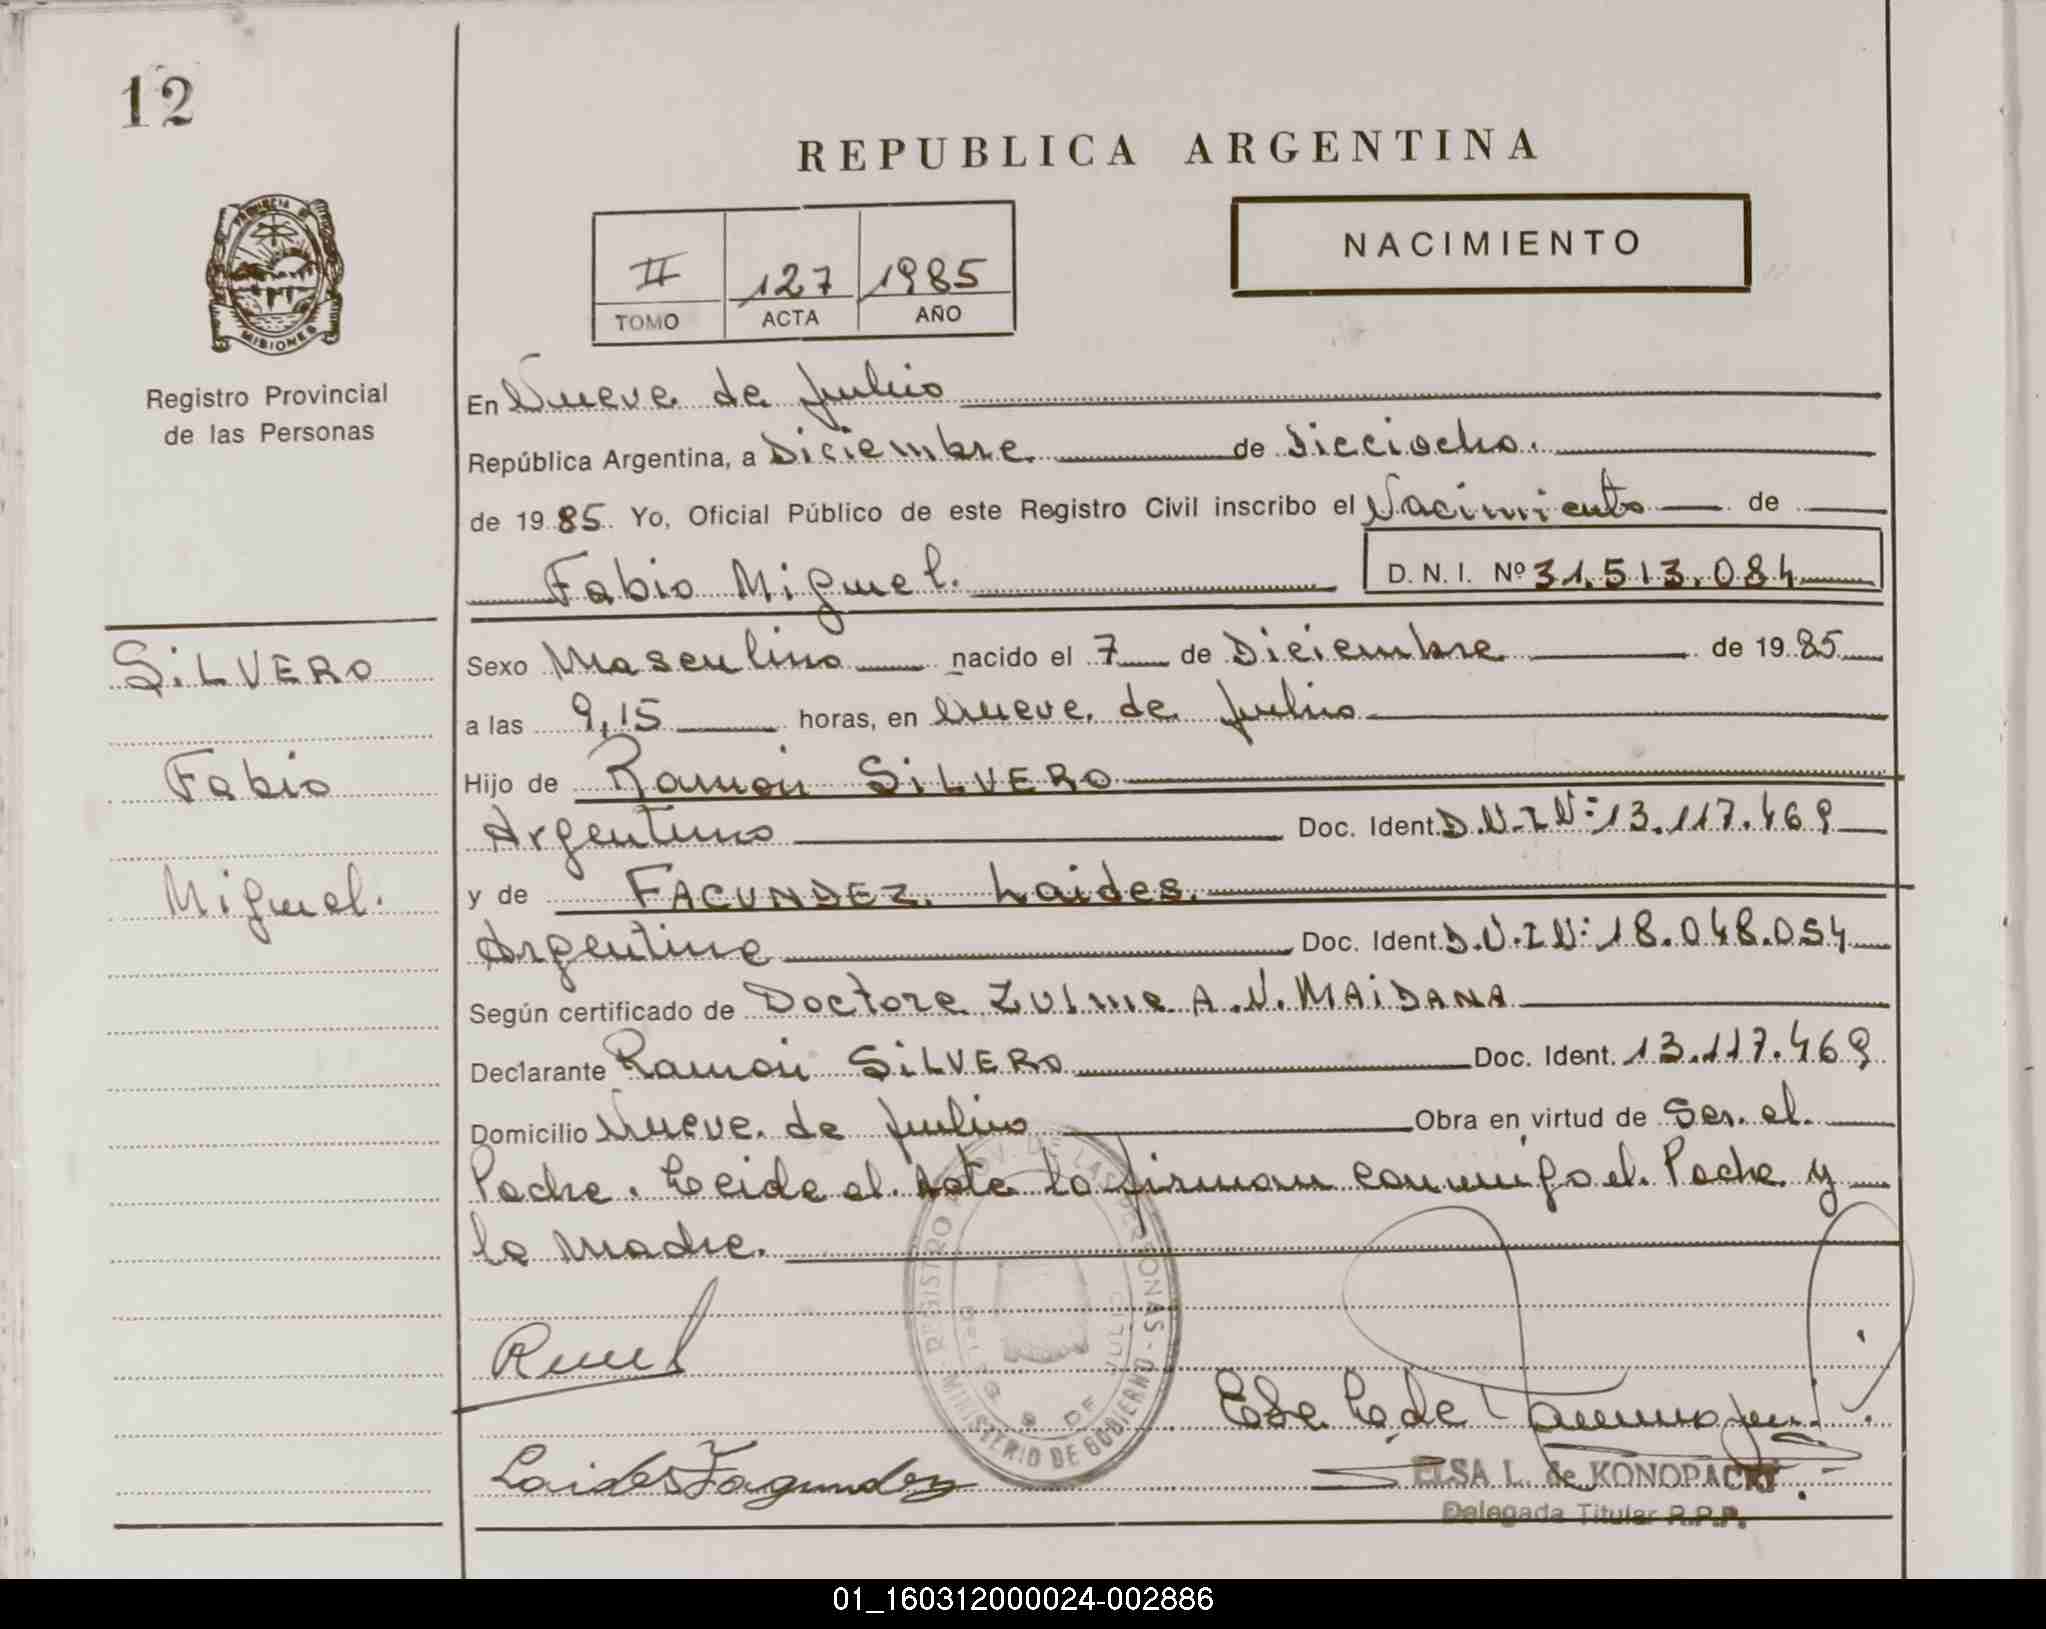 12
REPUBLICA ARGENTINA
PROVINCIA DE
MISIONES
Registro Provincial
de las Personas
II 127 1985
TOMO ACTA AÑO
NACIMIENTO
En Nueve de Julio
República Argentina, a Diciembre de Dieciocho.
de 1985. Yo, Oficial Público de este Registro Civil inscribo el Nacimiento de
Fabio Miguel. D. N. I. Nº 31.513.084
SiLVERO
Fabio
Miguel.
Sexo Masculino nacido el 7 de Diciembre de 1985
a las 9,15 horas, en Nueve de Julio
Hijo de Ramon SiLVERO
Argentino Doc. Ident. D.N.I Nº: 13.117.469
y de FACUNDEZ. Laides.
Argentina Doc. Ident. D.N.I Nº: 18.048.054
Según certificado de Doctora Zulma A.N. MAiDANA
Declarante Ramon SiLVERO Doc. Ident. 13.117.469
Domicilio Nueve de Julio Obra en virtud de Ser el
Padre. Leida el Acta la firman conmigo el Padre y
la Madre.
REGISTRO PROV. DE LAS PERSONAS - MINISTERIO DE GOBIERNO -
9 DE JULIO
Laides Fagundez
ELSA L. de KONOPACKI
Delegada Titular R.P.P.
01_160312000024-002886